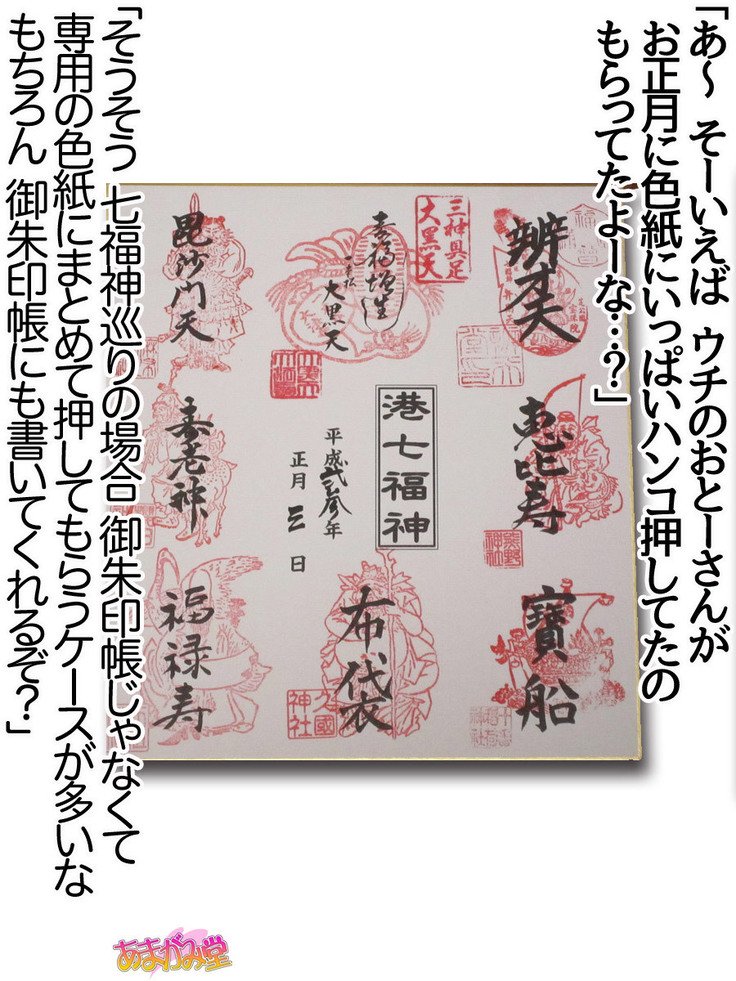 「あ～ そーいえば ウチのおとーさんが
お正月に色紙にいっぱいハンコ押してたの
もらってたよーな…？」
辨才天
三神具足
大黒天
幸福増生
大黒天
毘沙門天
恵比寿
熊野
神社
港七福神
平成弐拾参年
正月三日
寿老神
寳船
布袋
久國
神社
福禄寿
「そうそう 七福神巡りの場合 御朱印帳じゃなくて
専用の色紙にまとめて押してもらうケースが多いな
もちろん 御朱印帳にも書いてくれるぞ？」
あまがみ堂